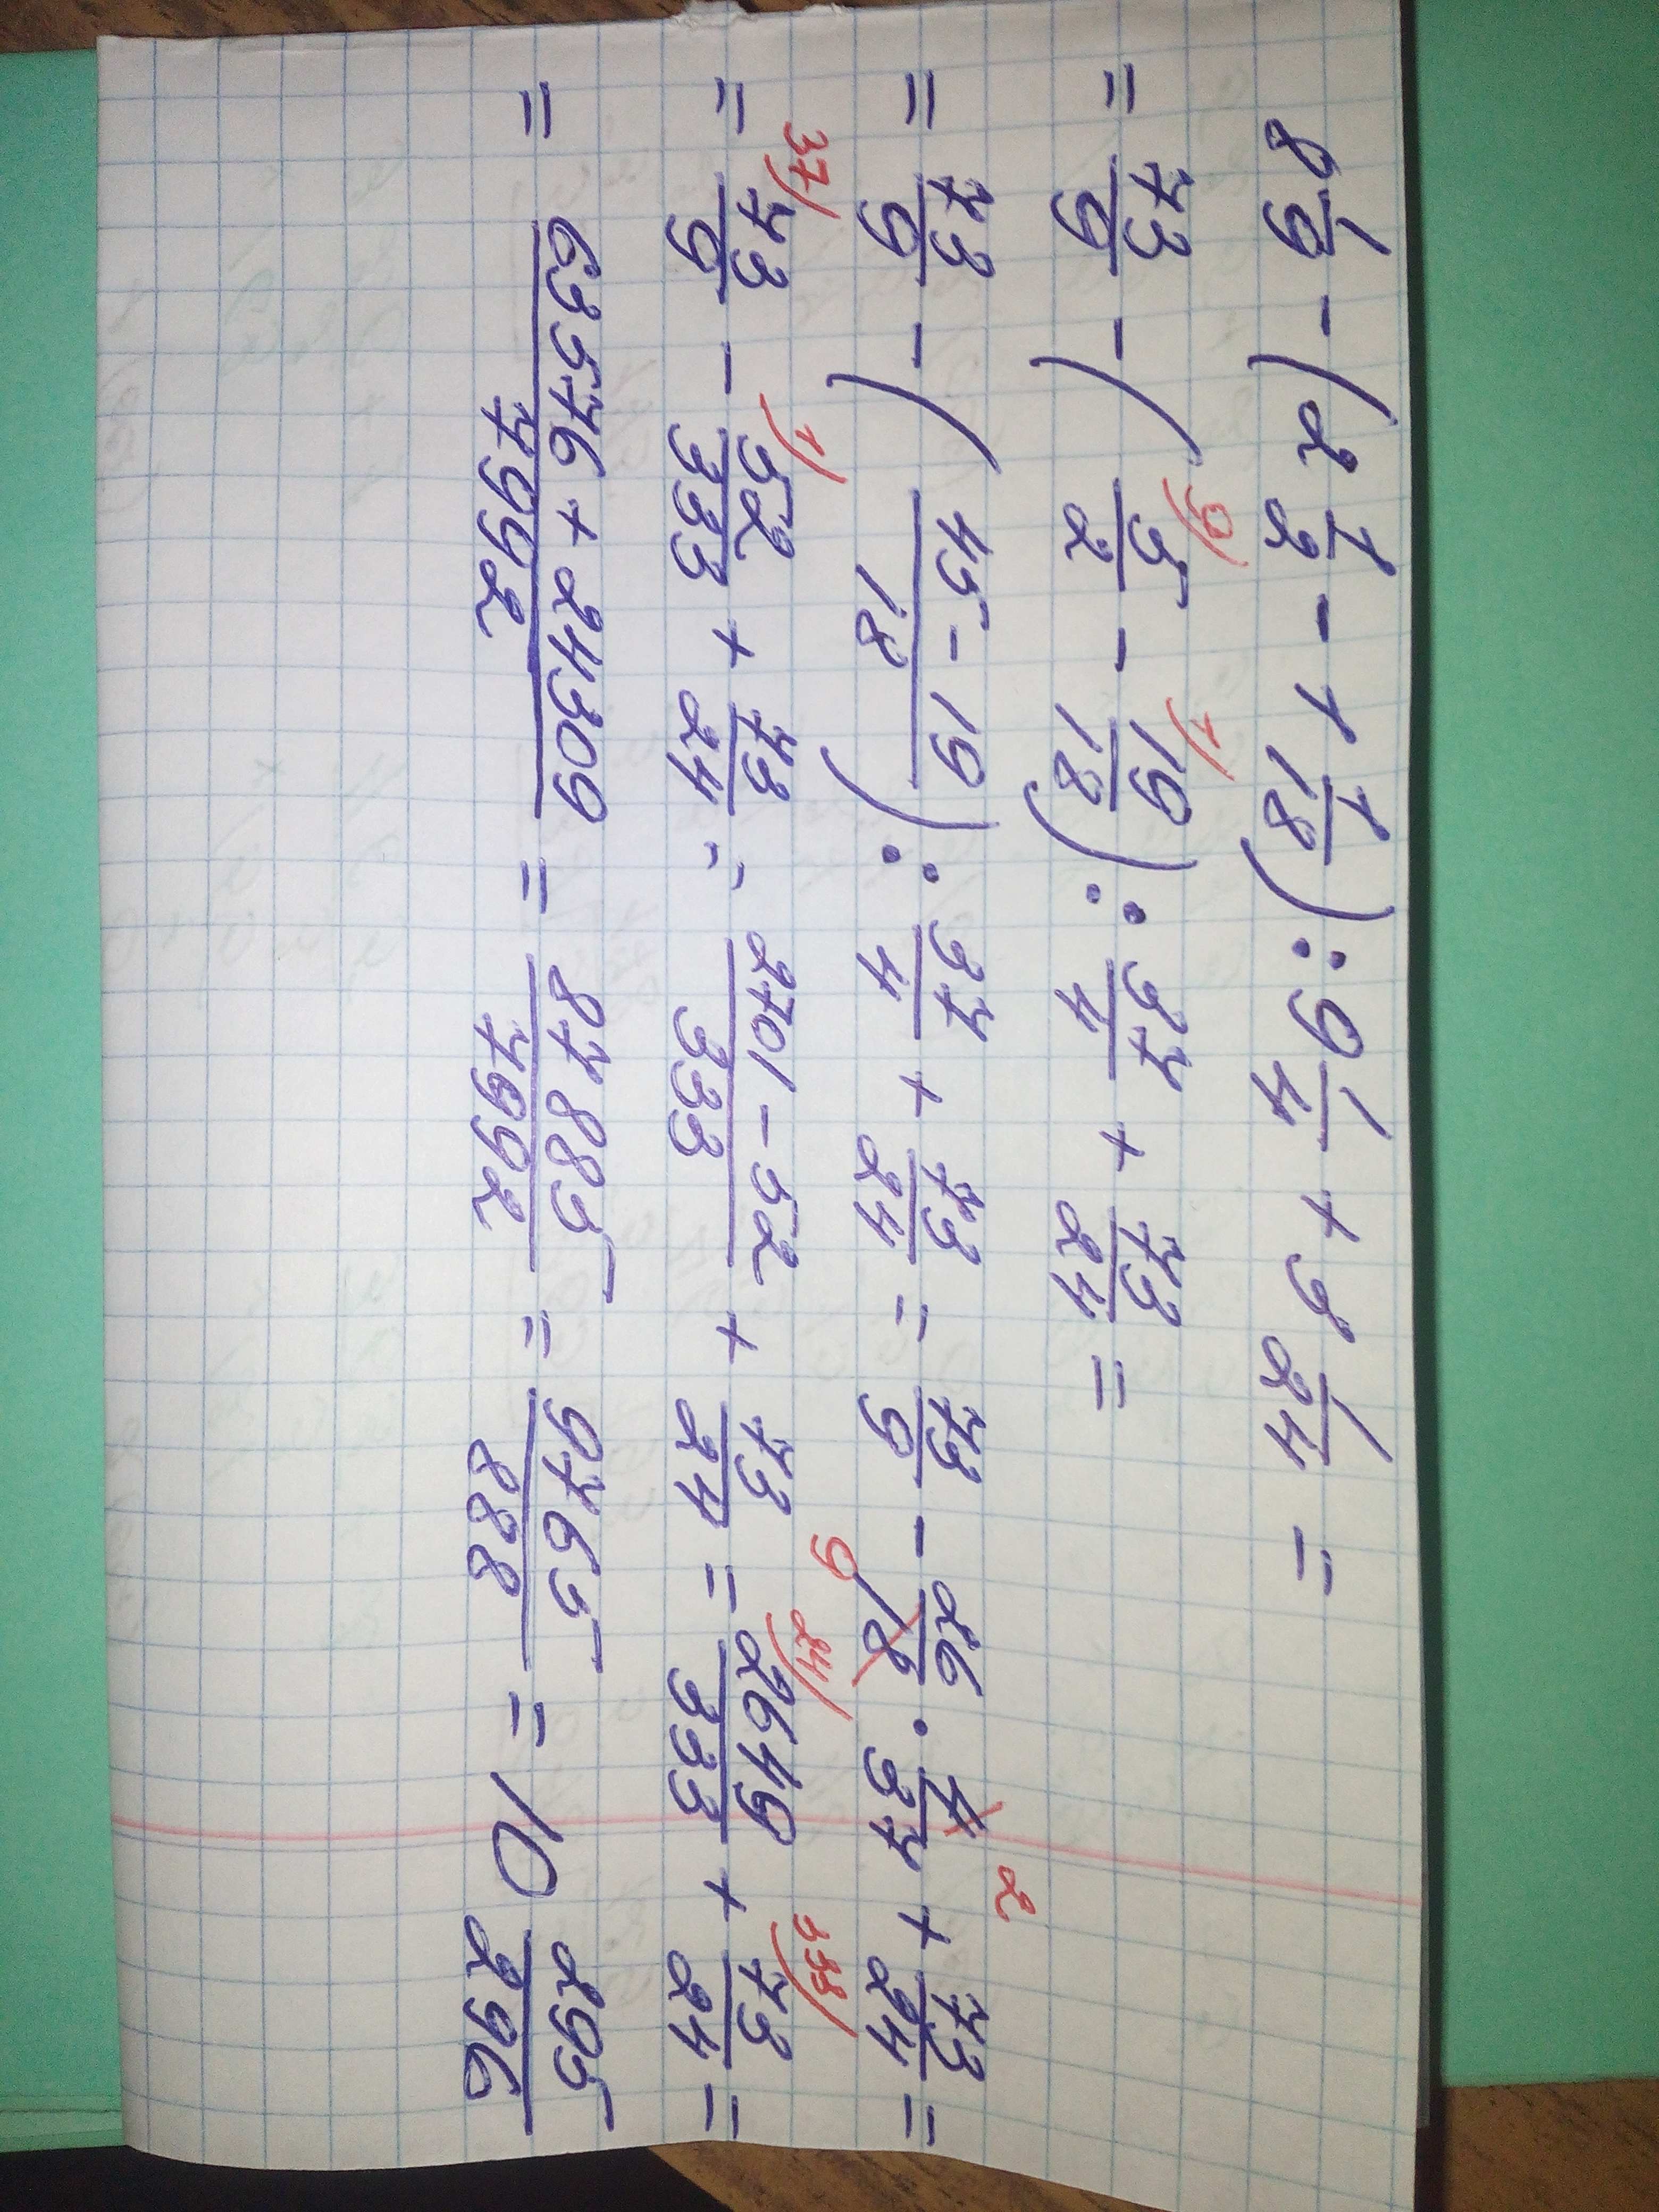 8 1/9 - (2 1/2 - 1 1/18) : 9 1/4 + 3 1/24 =
= 73/9 - ( 9) 5/2 - 1) 19/18 ) : 37/4 + 73/24 =
= 73/9 - ( 45 - 19 / 18 ) : 37/4 + 73/24 = 73/9 - 26/18 9 · 4/37 2 + 73/24 =
= 37) 73/9 - 1) 52/333 + 73/24 = 2701 - 52 / 333 + 73/24 = 24) 2649/333 + 333) 73/24 =
= 63576 + 24309 / 7992 = 87885/7992 = 9765/888 = 10 295/296